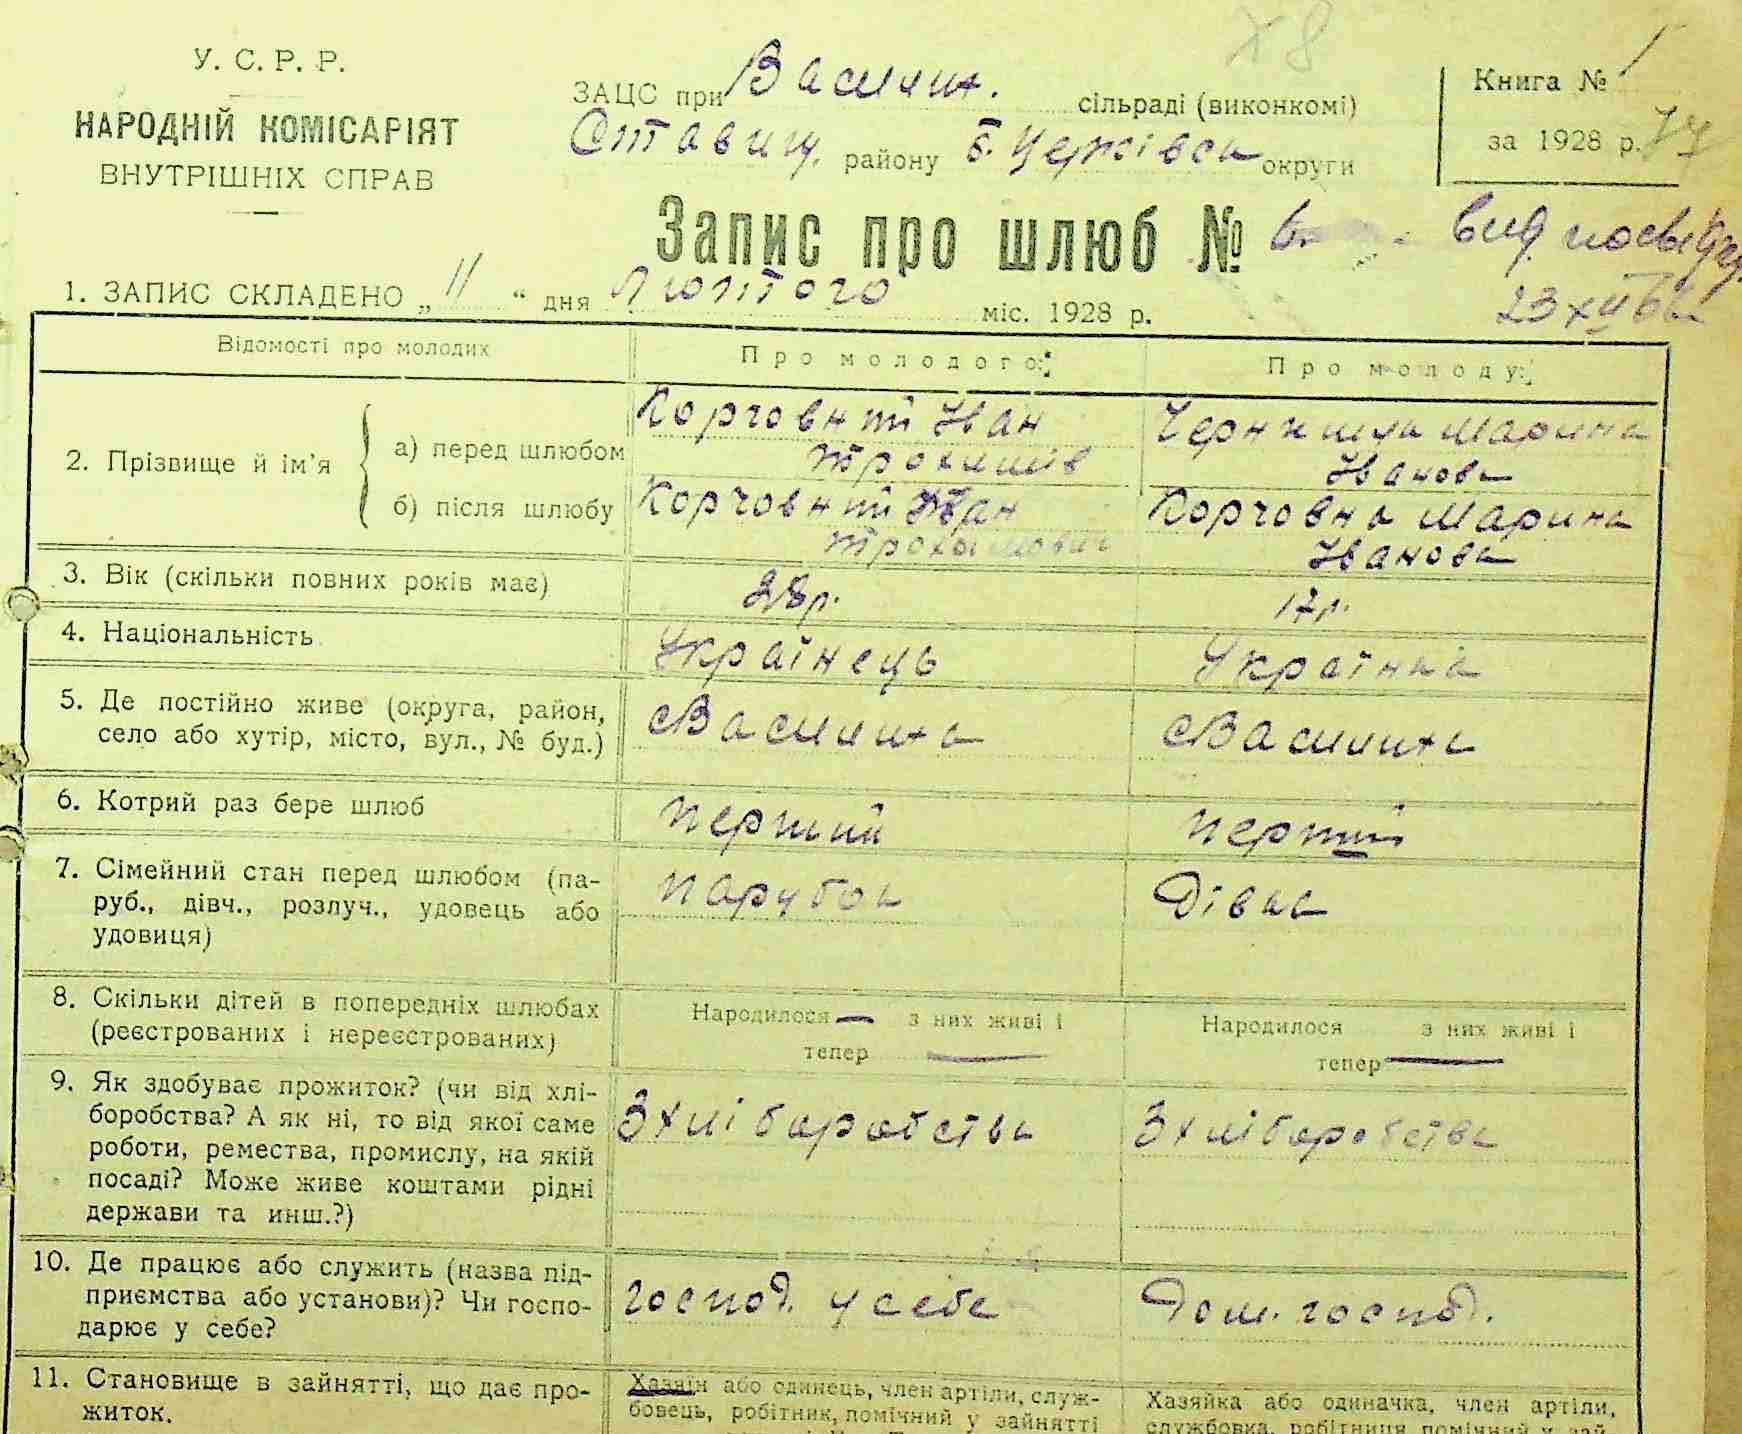 Х8
У. С. Р. Р.
НАРОДНІЙ КОМІСАРІЯТ
ВНУТРІШНІХ СПРАВ
ЗАЦС при Василих. сільраді (виконкомі)
Ставищ. району Б. Церківськ округи
Книга № 1
за 1928 р. 77
Запис про шлюб № 6.
вид. посвідч.
23 XII 66
1. ЗАПИС СКЛАДЕНО „ 11 “ дня Лютого міс. 1928 р.
Відомості про молодих
Про молодого:
Про молоду:
2. Прізвище й ім’я
а) перед шлюбом
Корчовний Іван
Трохимів
Марина
Іванова
б) після шлюбу
Корчовний Іван
Трохимович
Корчовна Марина
Іванова
3. Вік (скільки повних років має)
28р.
17р.
4. Національність
Українець
Українка
5. Де постійно живе (округа, район,
село або хутір, місто, вул., № буд.)
с Василиха
с Василиха
6. Котрий раз бере шлюб
перший
перший
7. Сімейний стан перед шлюбом (па-
руб., дівч., розлуч., удовець або
удовиця)
парубок
Дівка
8. Скільки дітей в попередніх шлюбах
(реєстрованих і нереєстрованих)
Народилося — з них живі і
тепер —
Народилося з них живі і
тепер —
9. Як здобуває прожиток? (чи від хлі-
боробства? А як ні, то від якої саме
роботи, ремества, промислу, на якій
посаді? Може живе коштами рідні
держави та инш.?)
З хліборобства
З хліборобства
10. Де працює або служить (назва під-
приємства або установи)? Чи госпо-
дарює у себе?
господ. у себе
Дом. господ.
11. Становище в зайнятті, що дає про-
житок.
Хазяїн або одинець, член артіли, служ-
бовець, робітник, помічний у зайнятті
Хазяйка або одиначка, член артіли,
службовка, робітниця помічний у зай-